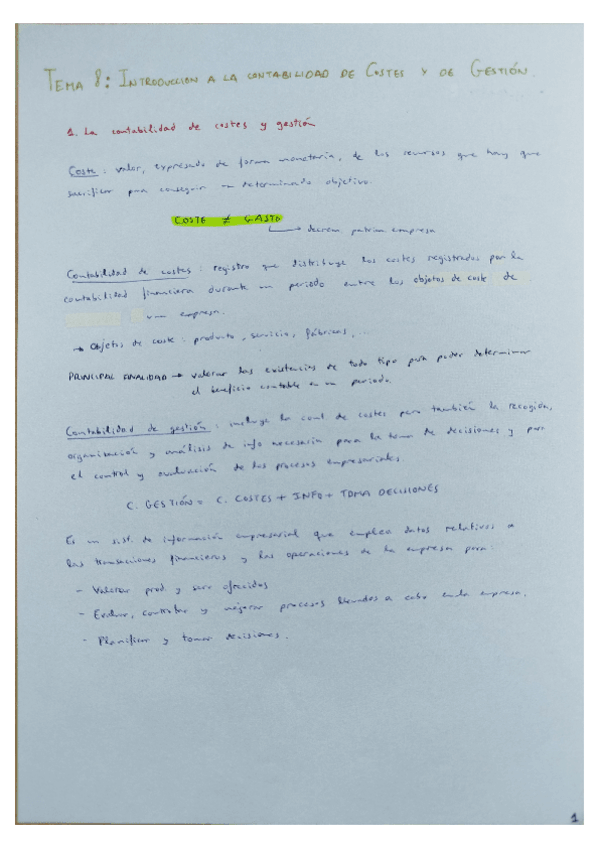 TEMA 8: INTRODUCCION A LA CONTABILIDAD DE COSTES Y DE GESTIÓN.
1. La contabilidad de costes y gestión
Coste: valor, expresado de forma monetaria, de los recursos que hay que
sacrificar para conseguir un determinado objetivo.
COSTE ≠ GASTO
decrem patrim empresa
Contabilidad de costes: registro que distribuye los costes registrados por la
contabilidad financiera durante un periodo entre los objetos de coste de
una empresa.
→ Objetos de coste: producto, servicio, fábricas, ...
PRINCIPAL FINALIDAD → valorar las existencias de todo tipo para poder determinar
el beneficio contable en un periodo.
Contabilidad de gestión: incluye la cont de costes pero también la recogida,
organización y análisis de info necesaria para la toma de decisiones y para
el control y evaluación de los procesos empresariales.
C. GESTIÓN = C. COSTES + INFO + TOMA DECISIONES
Es un sist. de información empresarial que emplea datos relativos a
las transacciones financieras y las operaciones de la empresa para:
- Valorar prod. y serv ofrecidos
- Evaluar, controlar y mejorar procesos llevados a cabo en la empresa.
- Planificar y tomar decisiones.
1